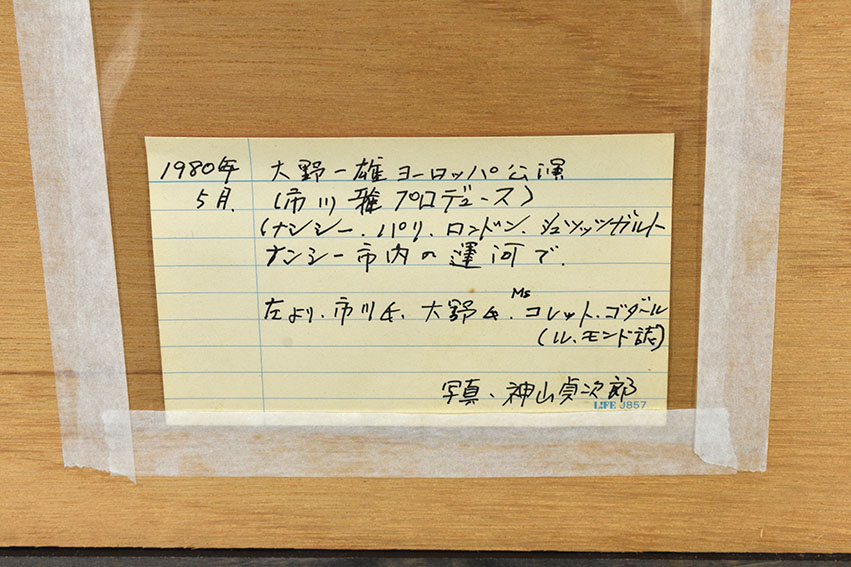 1980年 大野一雄ヨーロッパ公演
5月. (市川雅プロデュース)
(ナンシー.パリ.ロンドン.シュツッツガルト
ナンシー市内の運河で.
左より.市川氏.大野氏.Msコレット.ゴダール
(ル.モンド誌)
写真、神山貞次郎
LIFE J857